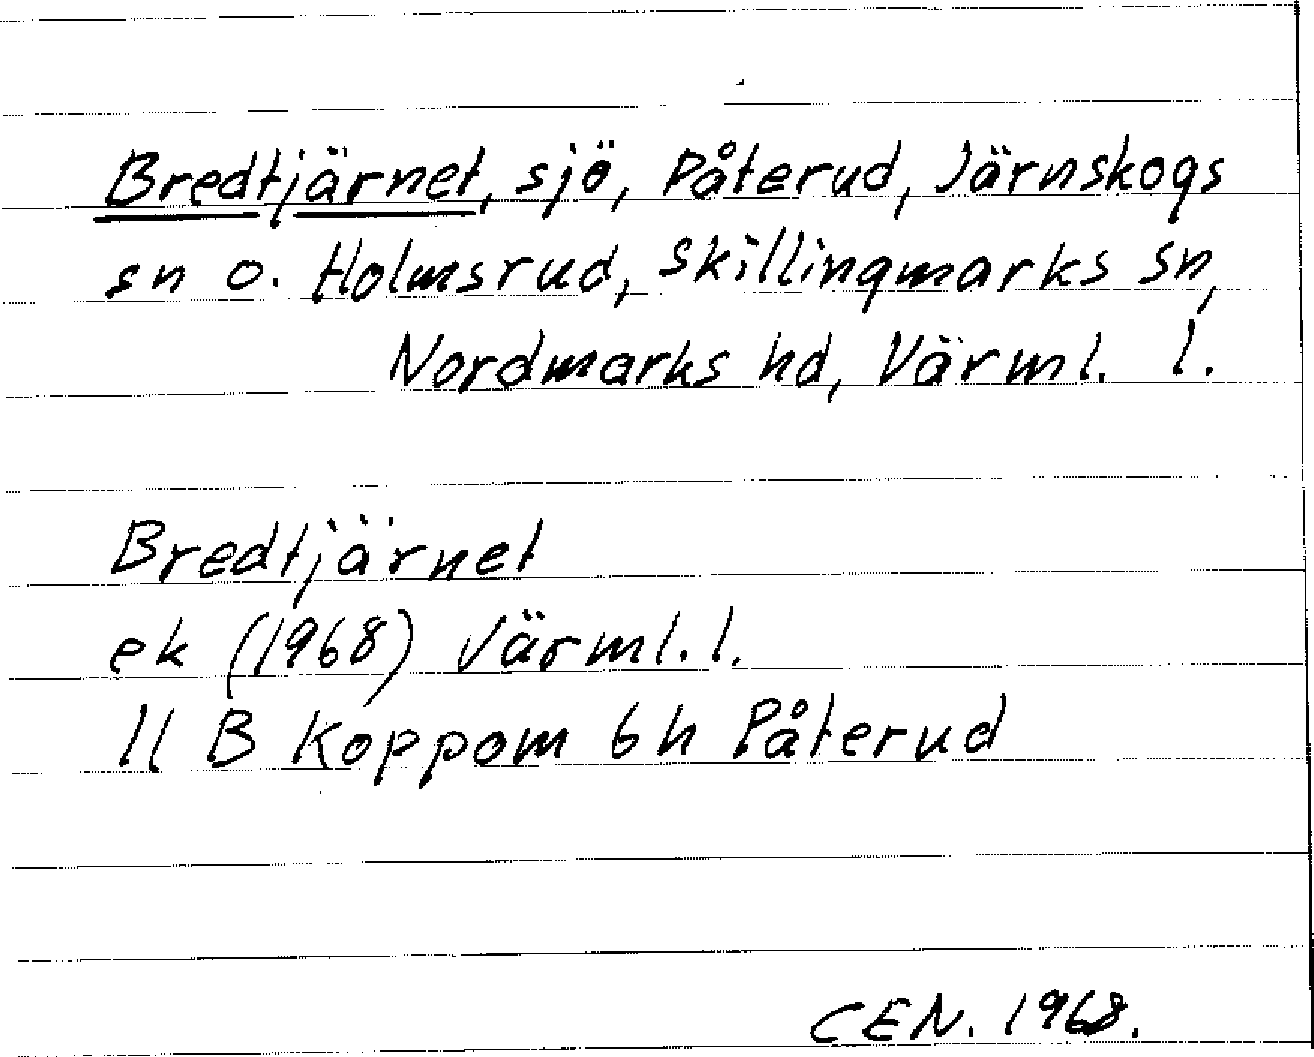 Bredtjärnet, sjö, Påterud, Järnskogs
sn o. Holmsrud, Skillingmarks sn,
Nordmarks hd, Värml. l.
Bredtjärnet
ek (1968) Värml. l.
11 B Koppom 6h Påterud
CEN. 1968.